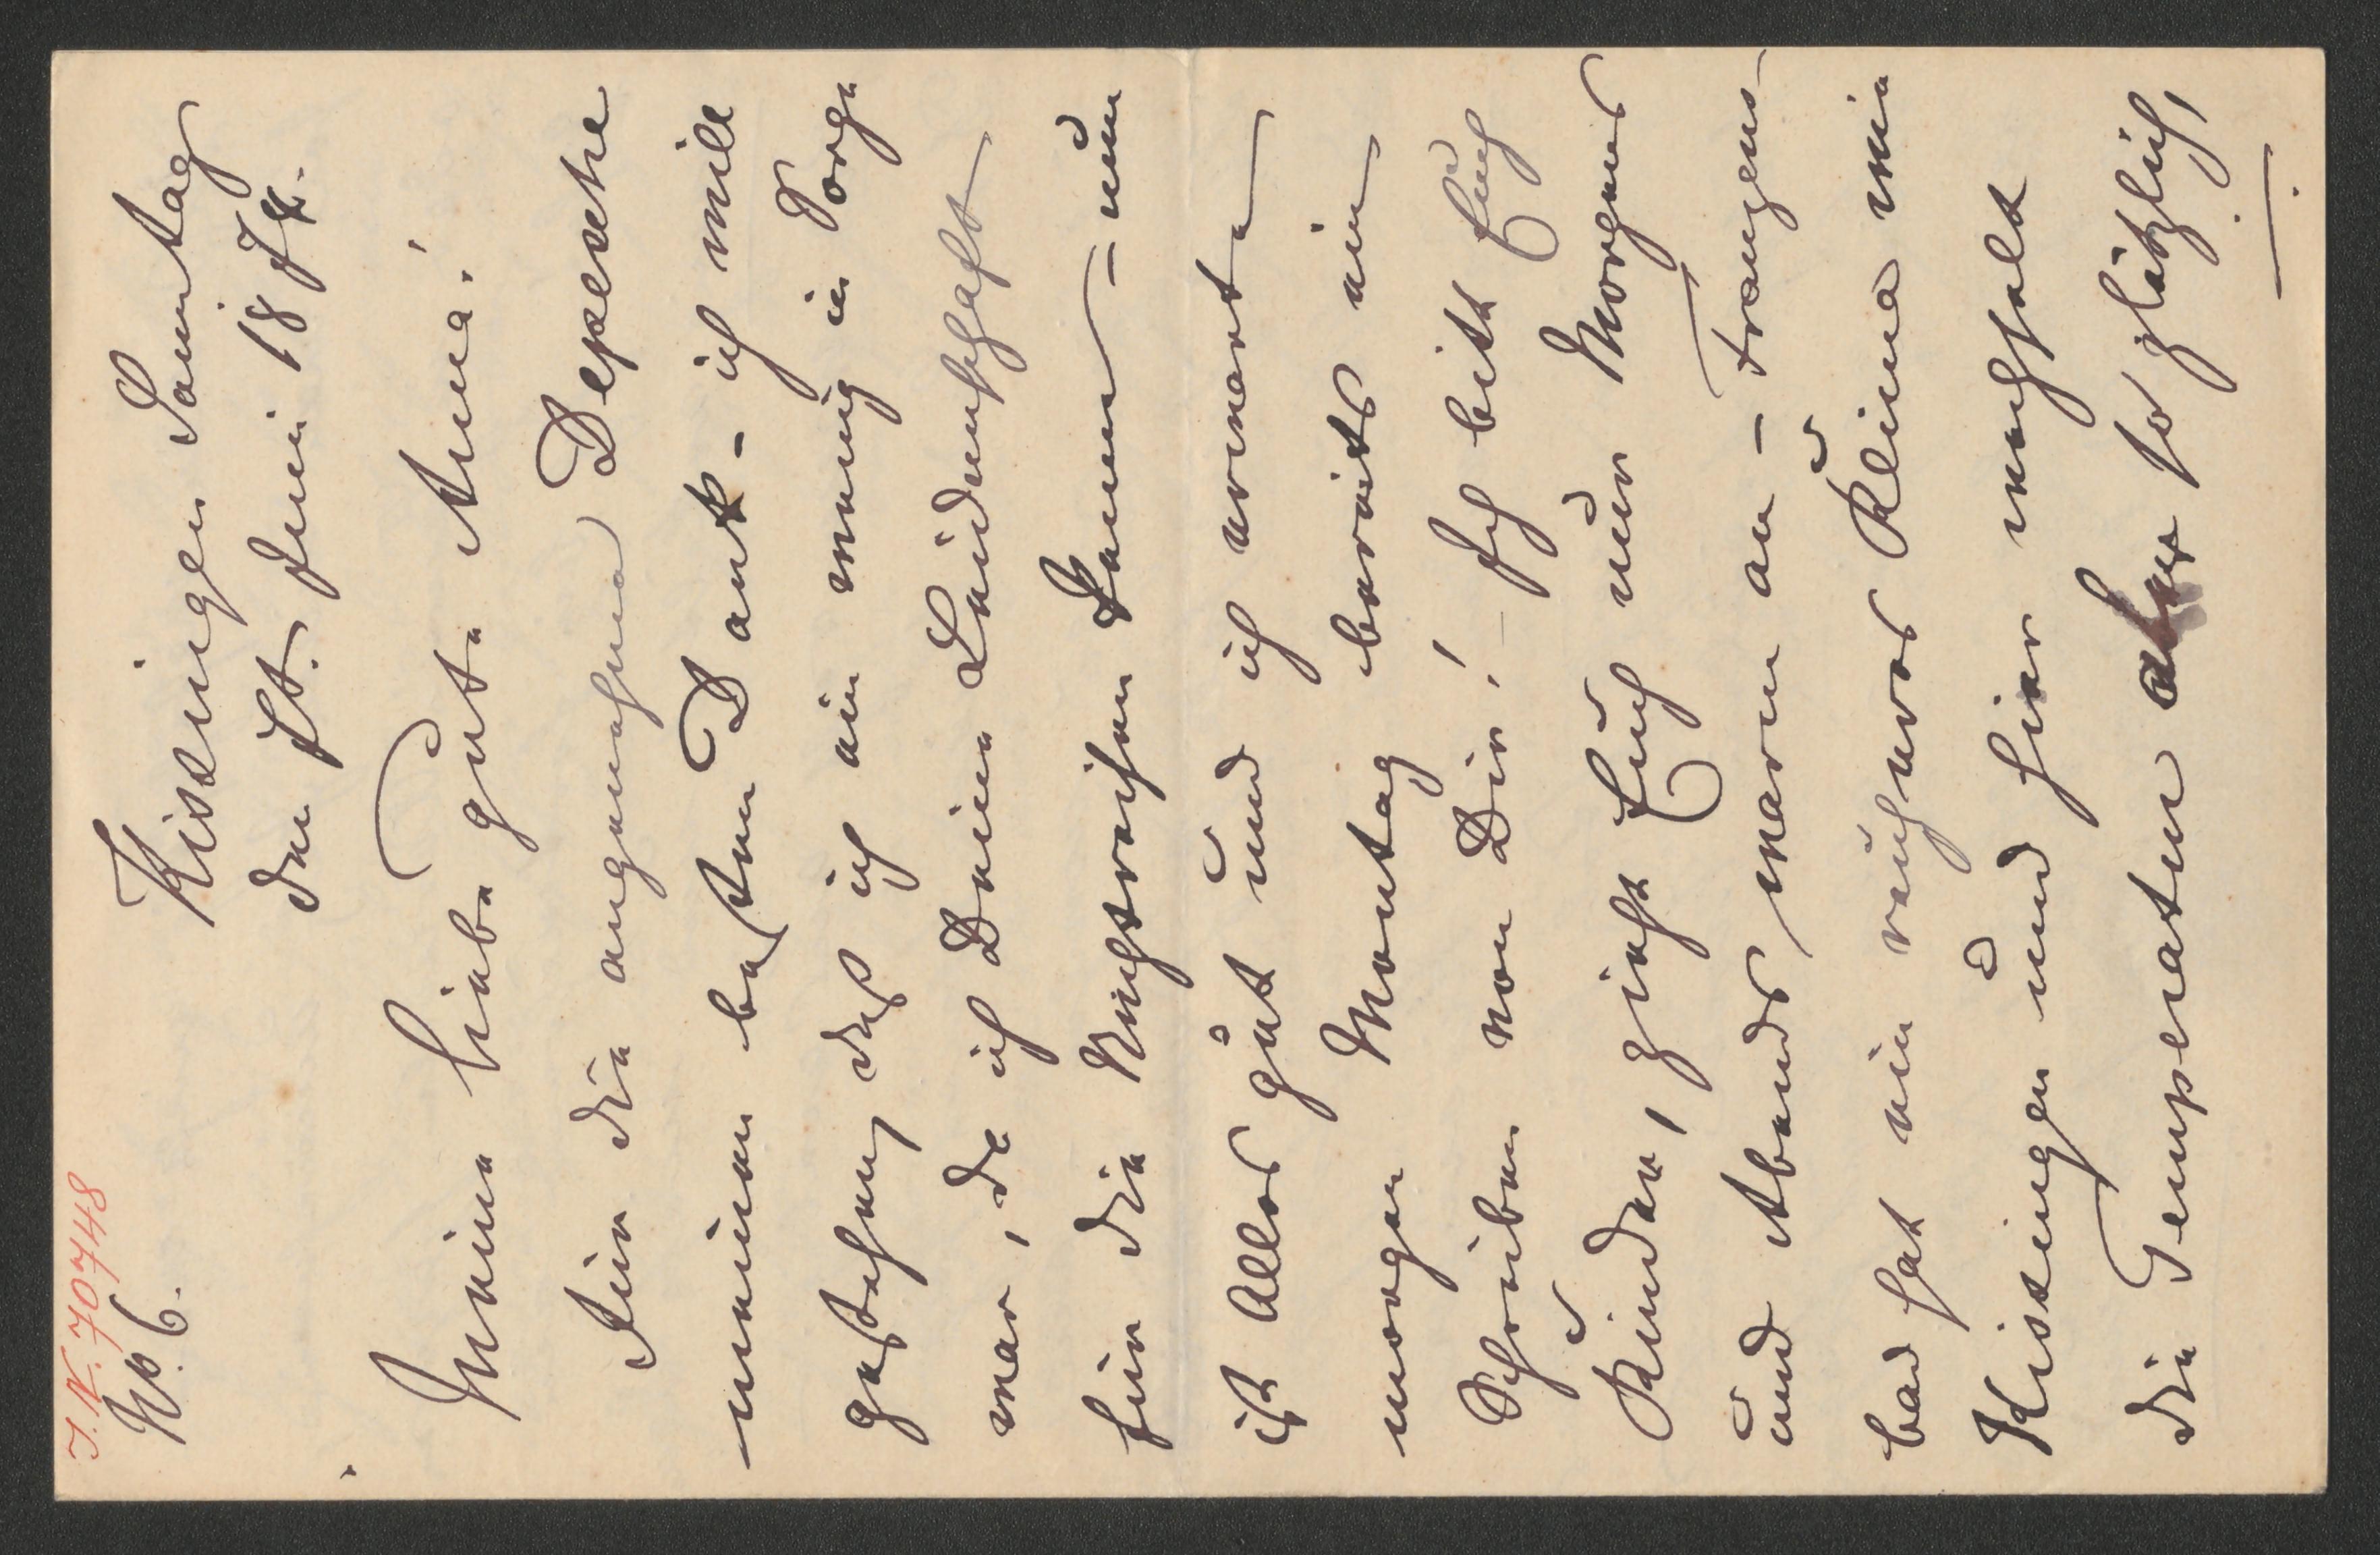 I.N. 70748
No. 6.
Kissingen Samstag
den Juni 187
Meine liebe gute Anna!
Für die angenehme Depesche
meinen besten Dank – ich will
gestehen, daß ich ein wenig in Sorge
war, da ich Deine Leidenschaft
für die Nachtreisen kenne – nun
ist Alles gut und ich erwarte
morgen Montag bereits ein
Schreiben von Dir! – Ich bitt Euch
Kinder, zieht Euch nur Morgens
und Abends warm an – Franzens-
bad hat ein rauheres Klima wie
Kissingen und hier wechselt
die Temperatur aber so plötzlich,